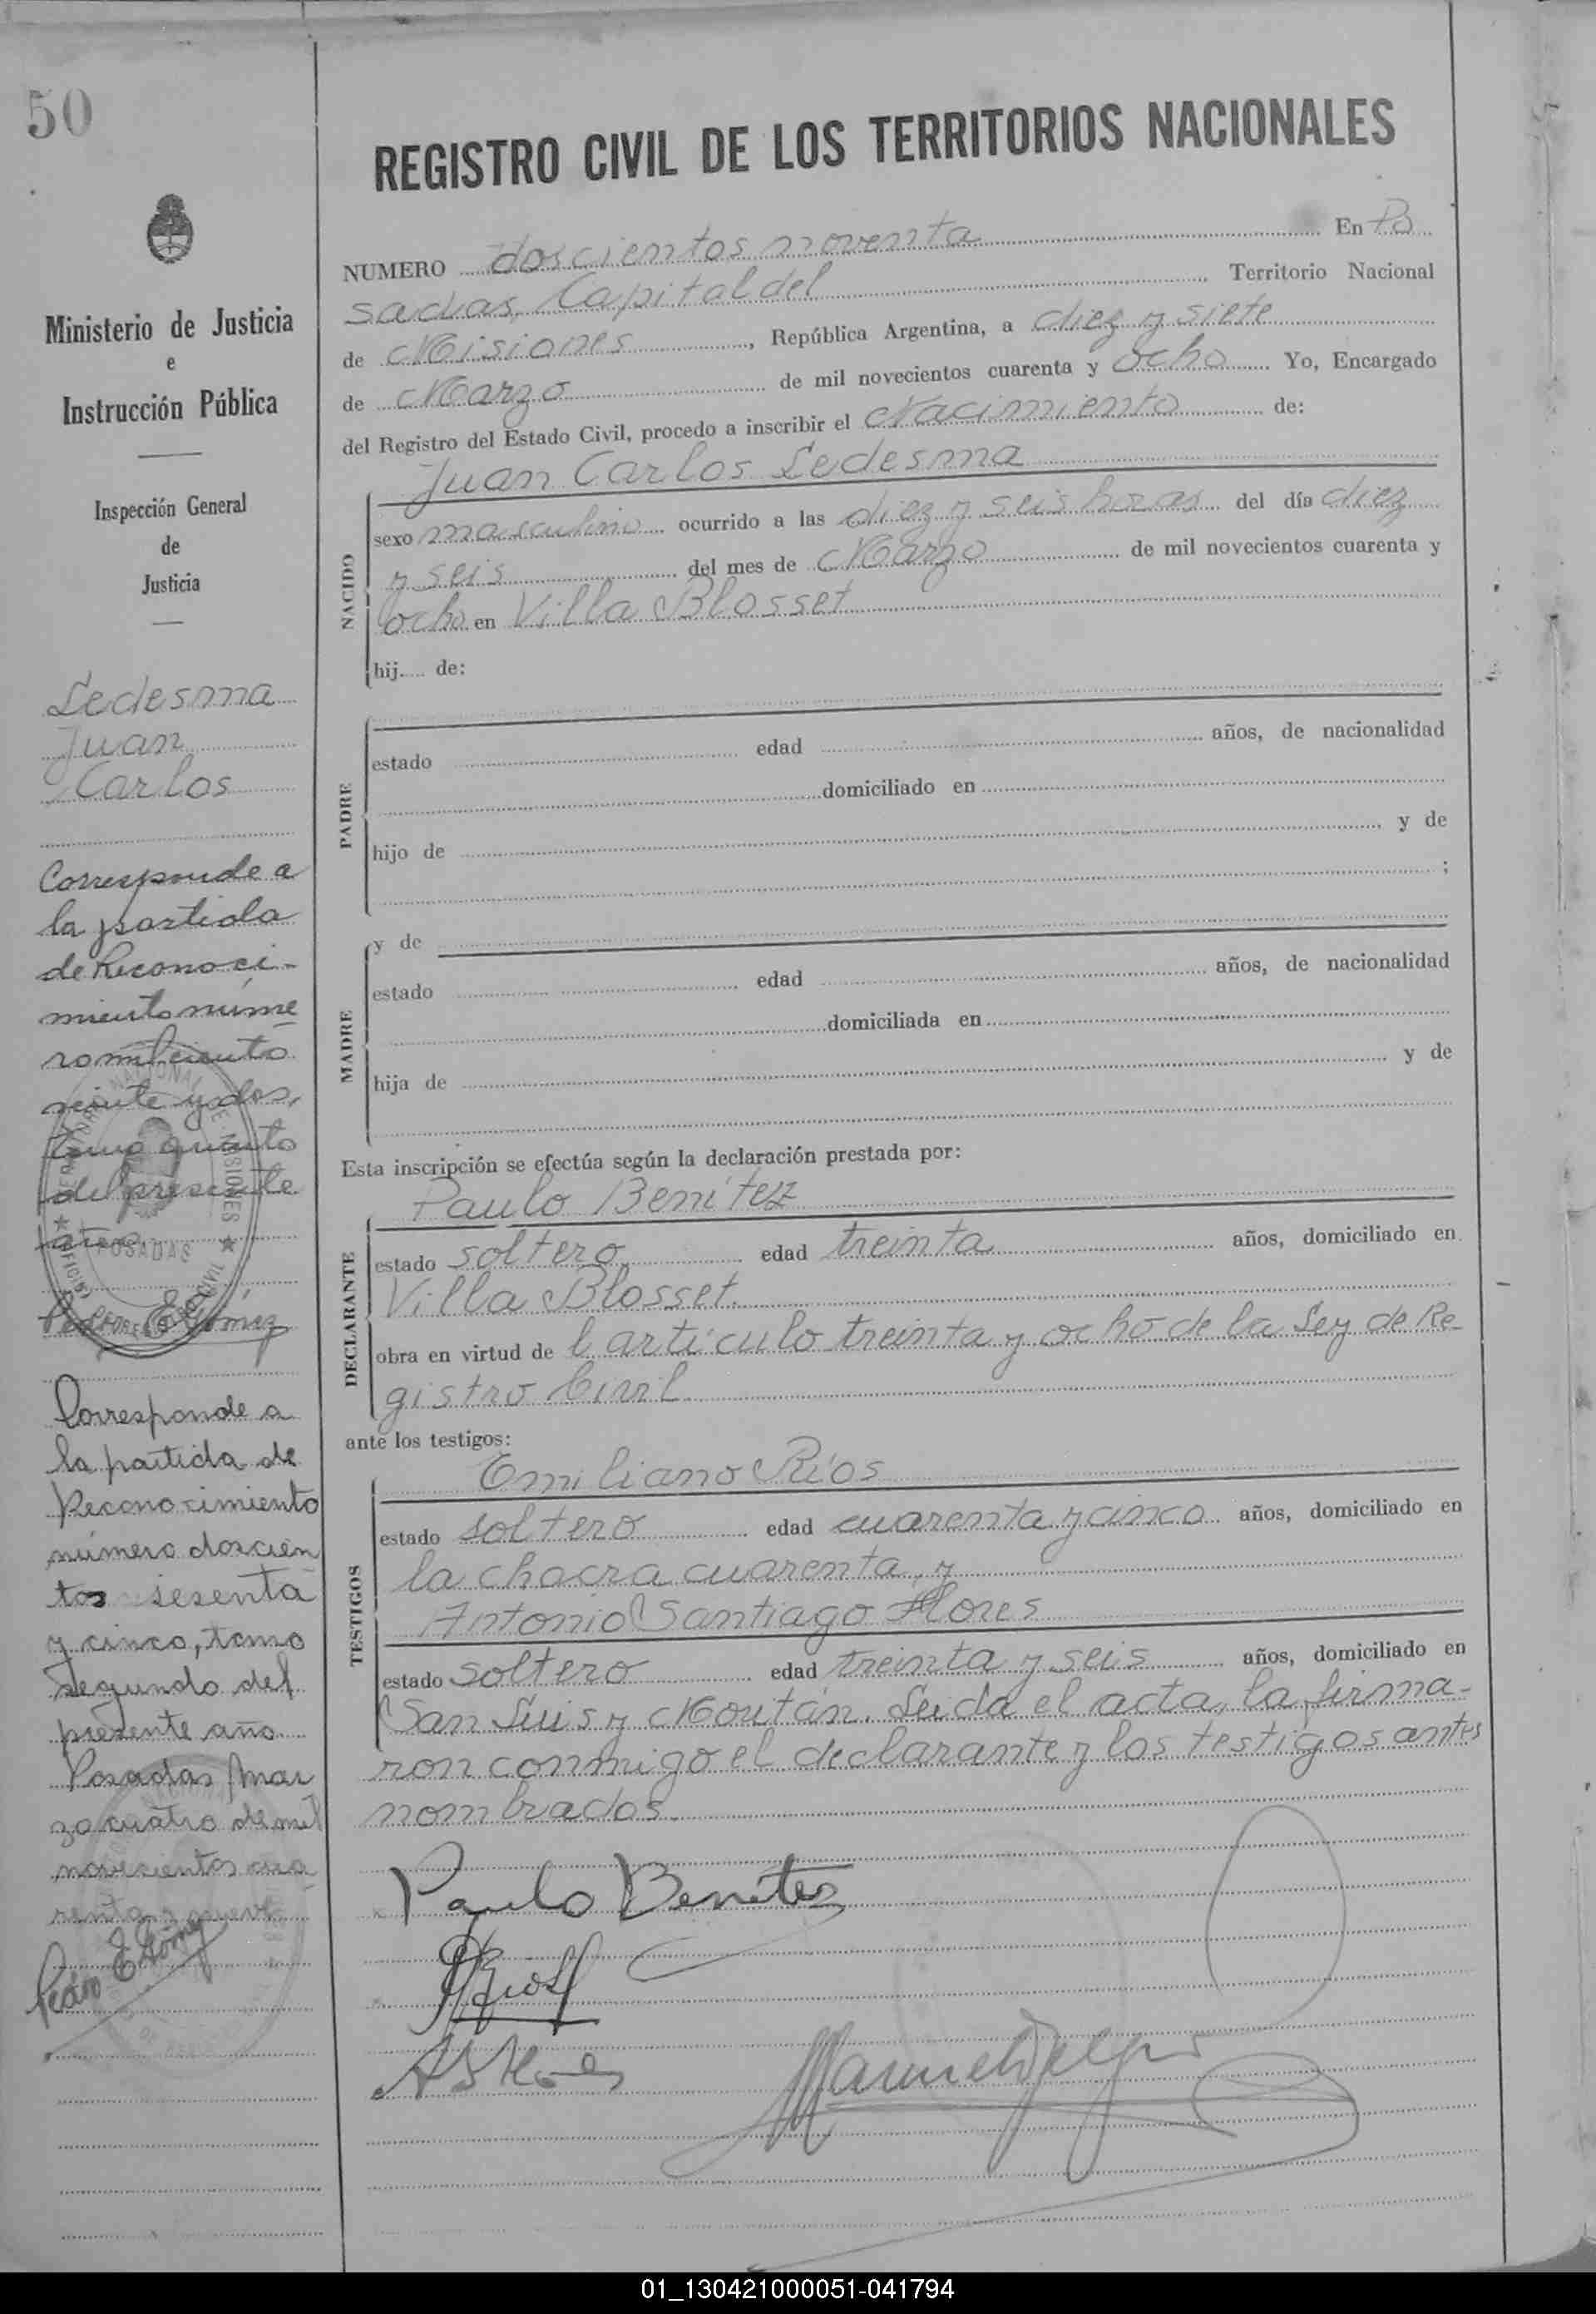 50
Ministerio de Justicia
e
Instrucción Pública
Inspección General
de
Justicia
Ledesma
Juan
Carlos
Corresponde a
la partida
de Reconoci-
miento núme
ro mil ciento
veinte y dos,
tomo quinto
del presente
Pedro E Gómez
Corresponde a
la partida de
Reconocimiento
número doscien
tos sesenta
y cinco, tomo
segundo del
presente año.
Posadas Mar
zo cuatro de mil
novecientos cua
renta y nueve
Pedro E Gómez
REGISTRO CIVIL DE LOS TERRITORIOS NACIONALES
NUMERO doscientos noventa En Po
sadas, Capital del Territorio Nacional
de Misiones, República Argentina, a diez y siete
de Marzo de mil novecientos cuarenta y ocho Yo, Encargado
del Registro del Estado Civil, procedo a inscribir el Nacimiento de:
Juan Carlos Ledesma
NACIDO
sexo masculino ocurrido a las diez y seis horas del día diez
y seis del mes de Marzo de mil novecientos cuarenta y
ocho en Villa Blosset
hij.... de:
PADRE
estado edad años, de nacionalidad
domiciliado en
hijo de y de
;
y de
MADRE
estado edad años, de nacionalidad
domiciliada en
hija de y de
Esta inscripción se efectúa según la declaración prestada por:
Paulo Benítez
DECLARANTE
estado soltero edad treinta años, domiciliado en
Villa Blosset.
obra en virtud de l artículo treinta y ocho de la Ley de Re-
gistro Civil
ante los testigos:
Emiliano Ríos
TESTIGOS
estado soltero edad cuarenta y cinco años, domiciliado en
la chacra cuarenta, y
Antonio Santiago Flores
estado soltero edad treinta y seis años, domiciliado en
San Luis y Moután. Leida el acta, la firma-
ron conmigo el declarante y los testigos antes
nombrados.
Paulo Benitez
POSADAS
01_130421000051-041794